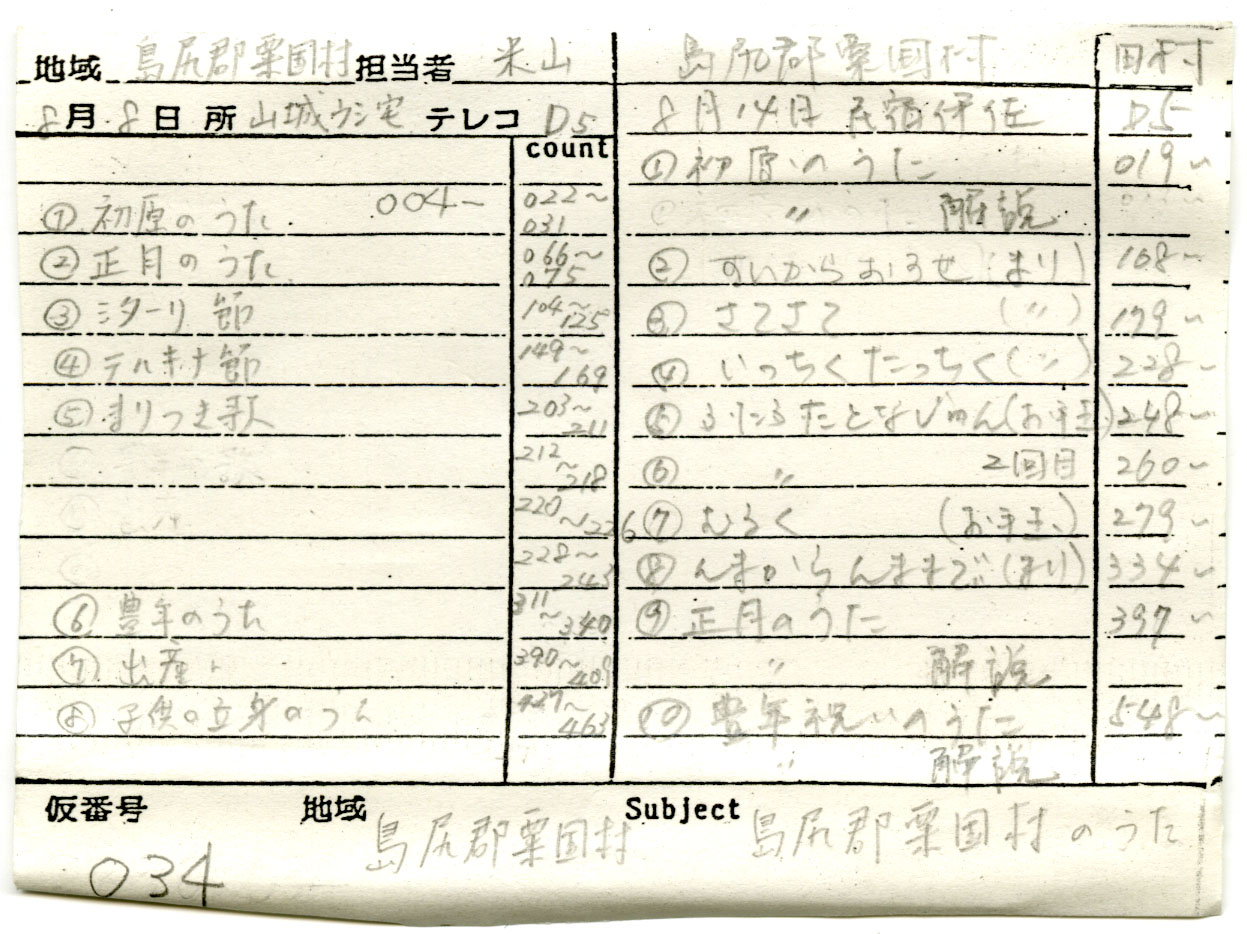 地域 島尻郡粟国村 担当者 米山
8月8日 所 山城ウシ宅 テレコ D5
count
① 初原のうた 004~ 022~031
② 正月のうた 066~075
③ ミターリ節 104~125
④ テルキナ節 149~169
⑤ まりつき歌 203~211
212~218
220~226
228~243
⑥ 豊年のうた 311~340
⑦ 出産 390~409
⑧ 子供の立身のうた 427~463
島尻郡粟国村 田村
8月14日 民宿伊佐 D5
① 初原のうた 019~
〃 解説
② すいからおろせ(まり) 168~
③ さてさて (〃) 179~
④ いっちくたっちく(〃) 228~
⑤ (お手玉) 248~
⑥ 〃 2回目 260~
⑦ むるく (お手玉) 279~
⑧ んまからんままで(まり) 334~
⑨ 正月のうた 397~
〃 解説
⑩ 豊年祝いのうた 548~
〃 解説
仮番号 地域 Subject
034 島尻郡粟国村 島尻郡粟国村のうた